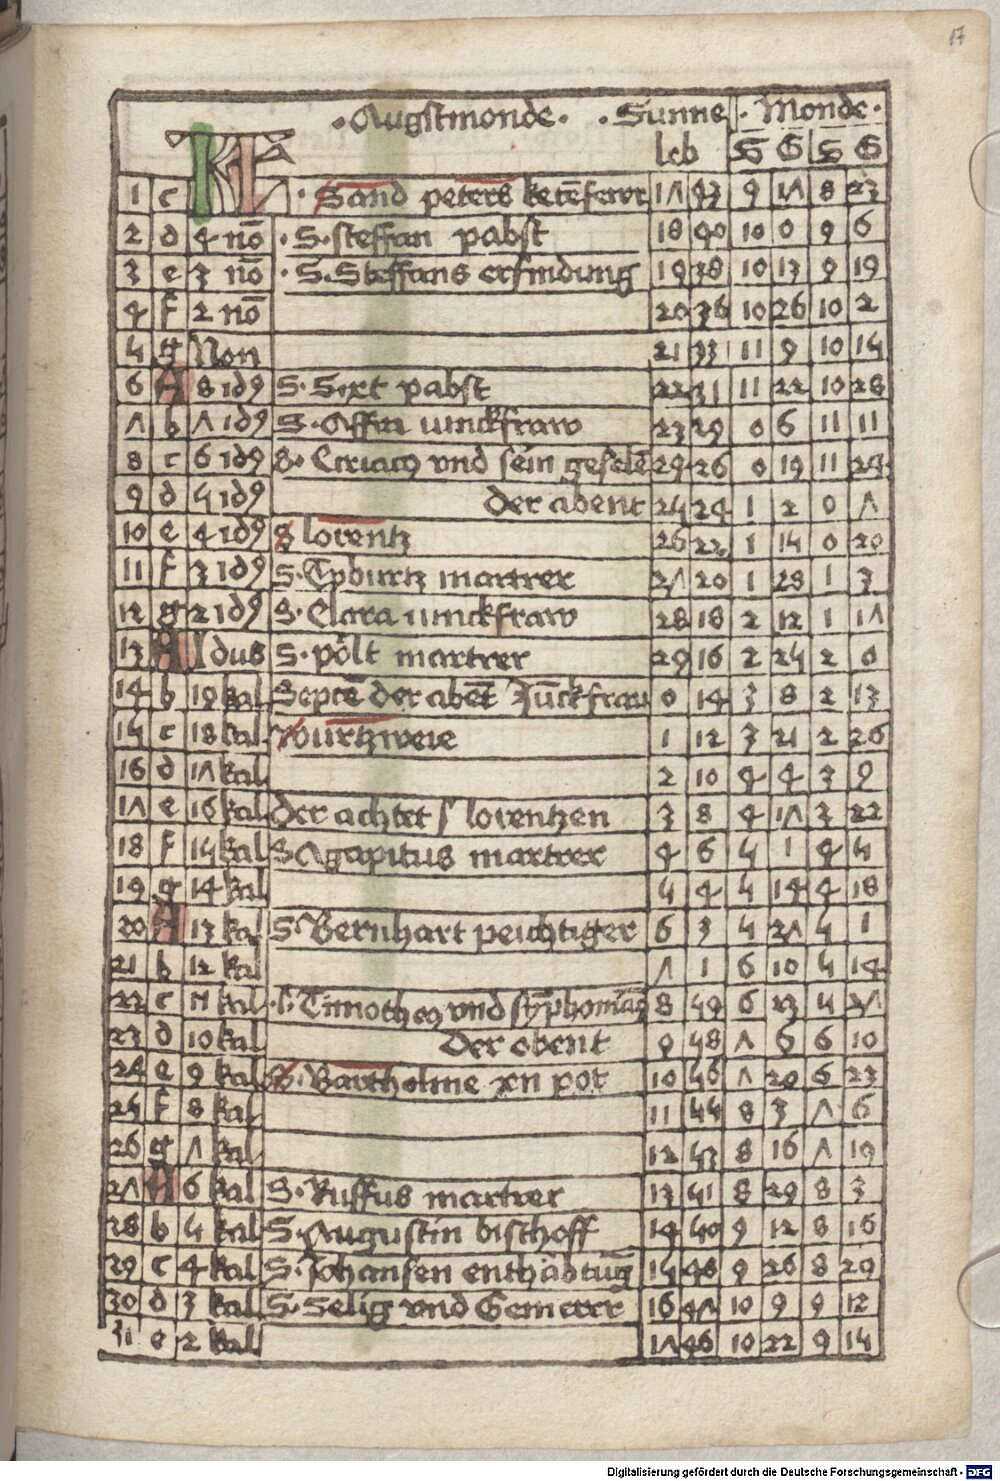 17
· Augstmonde · · Sunne · Monde ·
leb S G S G
KL
1 c · Sand peters ketēferor 17 43 9 17 8 23
2 d 4 nō · S. steffan pabst 18 40 10 0 9 6
3 e 3 nō · S. Steffans erfindung 19 38 10 13 9 19
4 f 2 nō 20 36 10 26 10 2
5 g Non 21 33 11 9 10 15
6 A 8 idꝰ S. Sixt pabst 22 31 11 22 10 28
7 b 7 idꝰ S. Affra iunckfraw 23 29 0 6 11 11
8 c 6 idꝰ S. Ciriacꝰ vnd sein geselē 24 26 0 19 11 24
9 d 5 idꝰ der abent 25 24 1 2 0 7
10 e 4 idꝰ S lorentz 26 22 1 15 0 20
11 f 3 idꝰ S. Tyburtz martrer 27 20 1 28 1 3
12 g 2 idꝰ S. Clara iunckfraw 28 18 2 12 1 17
13 A Idus S. pölt martrer 29 16 2 25 2 0
14 b 19 kal Septē der abēt Jūckfraw 0 14 3 8 2 13
15 c 18 kal Wurtzweie 1 12 3 21 2 26
16 d 17 kal 2 10 4 4 3 9
17 e 16 kal der achtet s lorentzen 3 8 4 17 3 22
18 f 15 kal S Agapitus martrer 4 6 5 1 4 5
19 g 14 kal 5 4 5 14 4 18
20 A 13 kal S Bernhart peichtiger 6 3 5 27 5 1
21 b 12 kal 7 1 6 10 5 14
22 c 11 kal · S. Timotheꝰ vnd sȳphoriāꝰ 8 59 6 23 5 27
23 d 10 kal Der obent 9 58 7 6 6 10
24 e 9 kal S. Bartholme xn pot 10 56 7 20 6 23
25 f 8 kal 11 55 8 3 7 6
26 g 7 kal 12 53 8 16 7 19
27 A 6 kal S. Ruffus martrer 13 51 8 29 8 3
28 b 5 kal S. Augustin bischoff 14 50 9 12 8 16
29 c 4 kal S. Johansen enthābtūg 15 48 9 26 8 29
30 d 3 kal S. Selig vnd Gemerer 16 47 10 9 9 12
31 e 2 kal 17 46 10 22 9 15
Digitalisierung gefördert durch die Deutsche Forschungsgemeinschaft - DFG